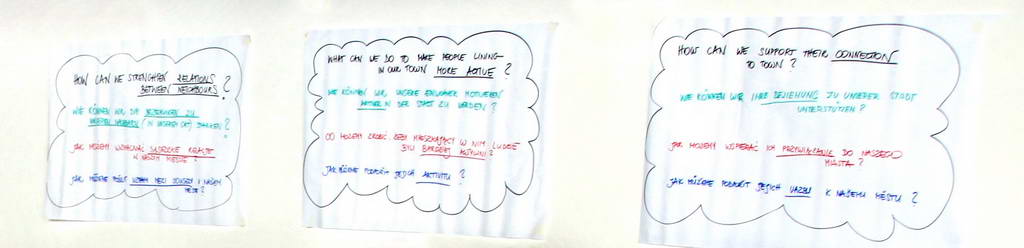 HOW CAN WE STRENGHTEN RELATIONS
BETWEEN NEIGHBOURS?
WIE KÖNNEN WIR DIE BEZIEHUNGEN ZU
UNSEREN NACHBARN (IN UNSEREM ORT) STÄRKEN?
JAK MOŻEMY WZMACNIAĆ SĄSIEDZKIE RELACJE
W NASZYM MIEŚCIE?
JAK MŮŽEME POSÍLIT VZTAHY MEZI SOUSEDY V NAŠEM
MĚSTĚ?
WHAT CAN WE DO TO MAKE PEOPLE LIVING
IN OUR TOWN MORE ACTIVE?
WIE KÖNNEN WIR UNSERE EINWOHNER MOTIVIEREN
AKTIVER IN DER STADT ZU WERDEN?
CO MOŻEMY ZROBIĆ, ŻEBY MIESZKAJĄCY W NIM LUDZIE
BYLI BARDZIEJ AKTYWNI?
JAK MŮŽEME PODPOŘIT JEJICH AKTIVITU?
HOW CAN WE SUPPORT THEIR CONNECTION
TO TOWN?
WIE KÖNNEN WIR IHRE BEZIEHUNG ZU UNSERER STADT
UNTERSTÜTZEN?
JAK MOŻEMY WSPIERAĆ ICH PRZYWIĄZANIE DO NASZEGO
MIASTA?
JAK MŮŽEME PODPOŘIT JEJICH VAZBU K NAŠEMU MĚSTU?